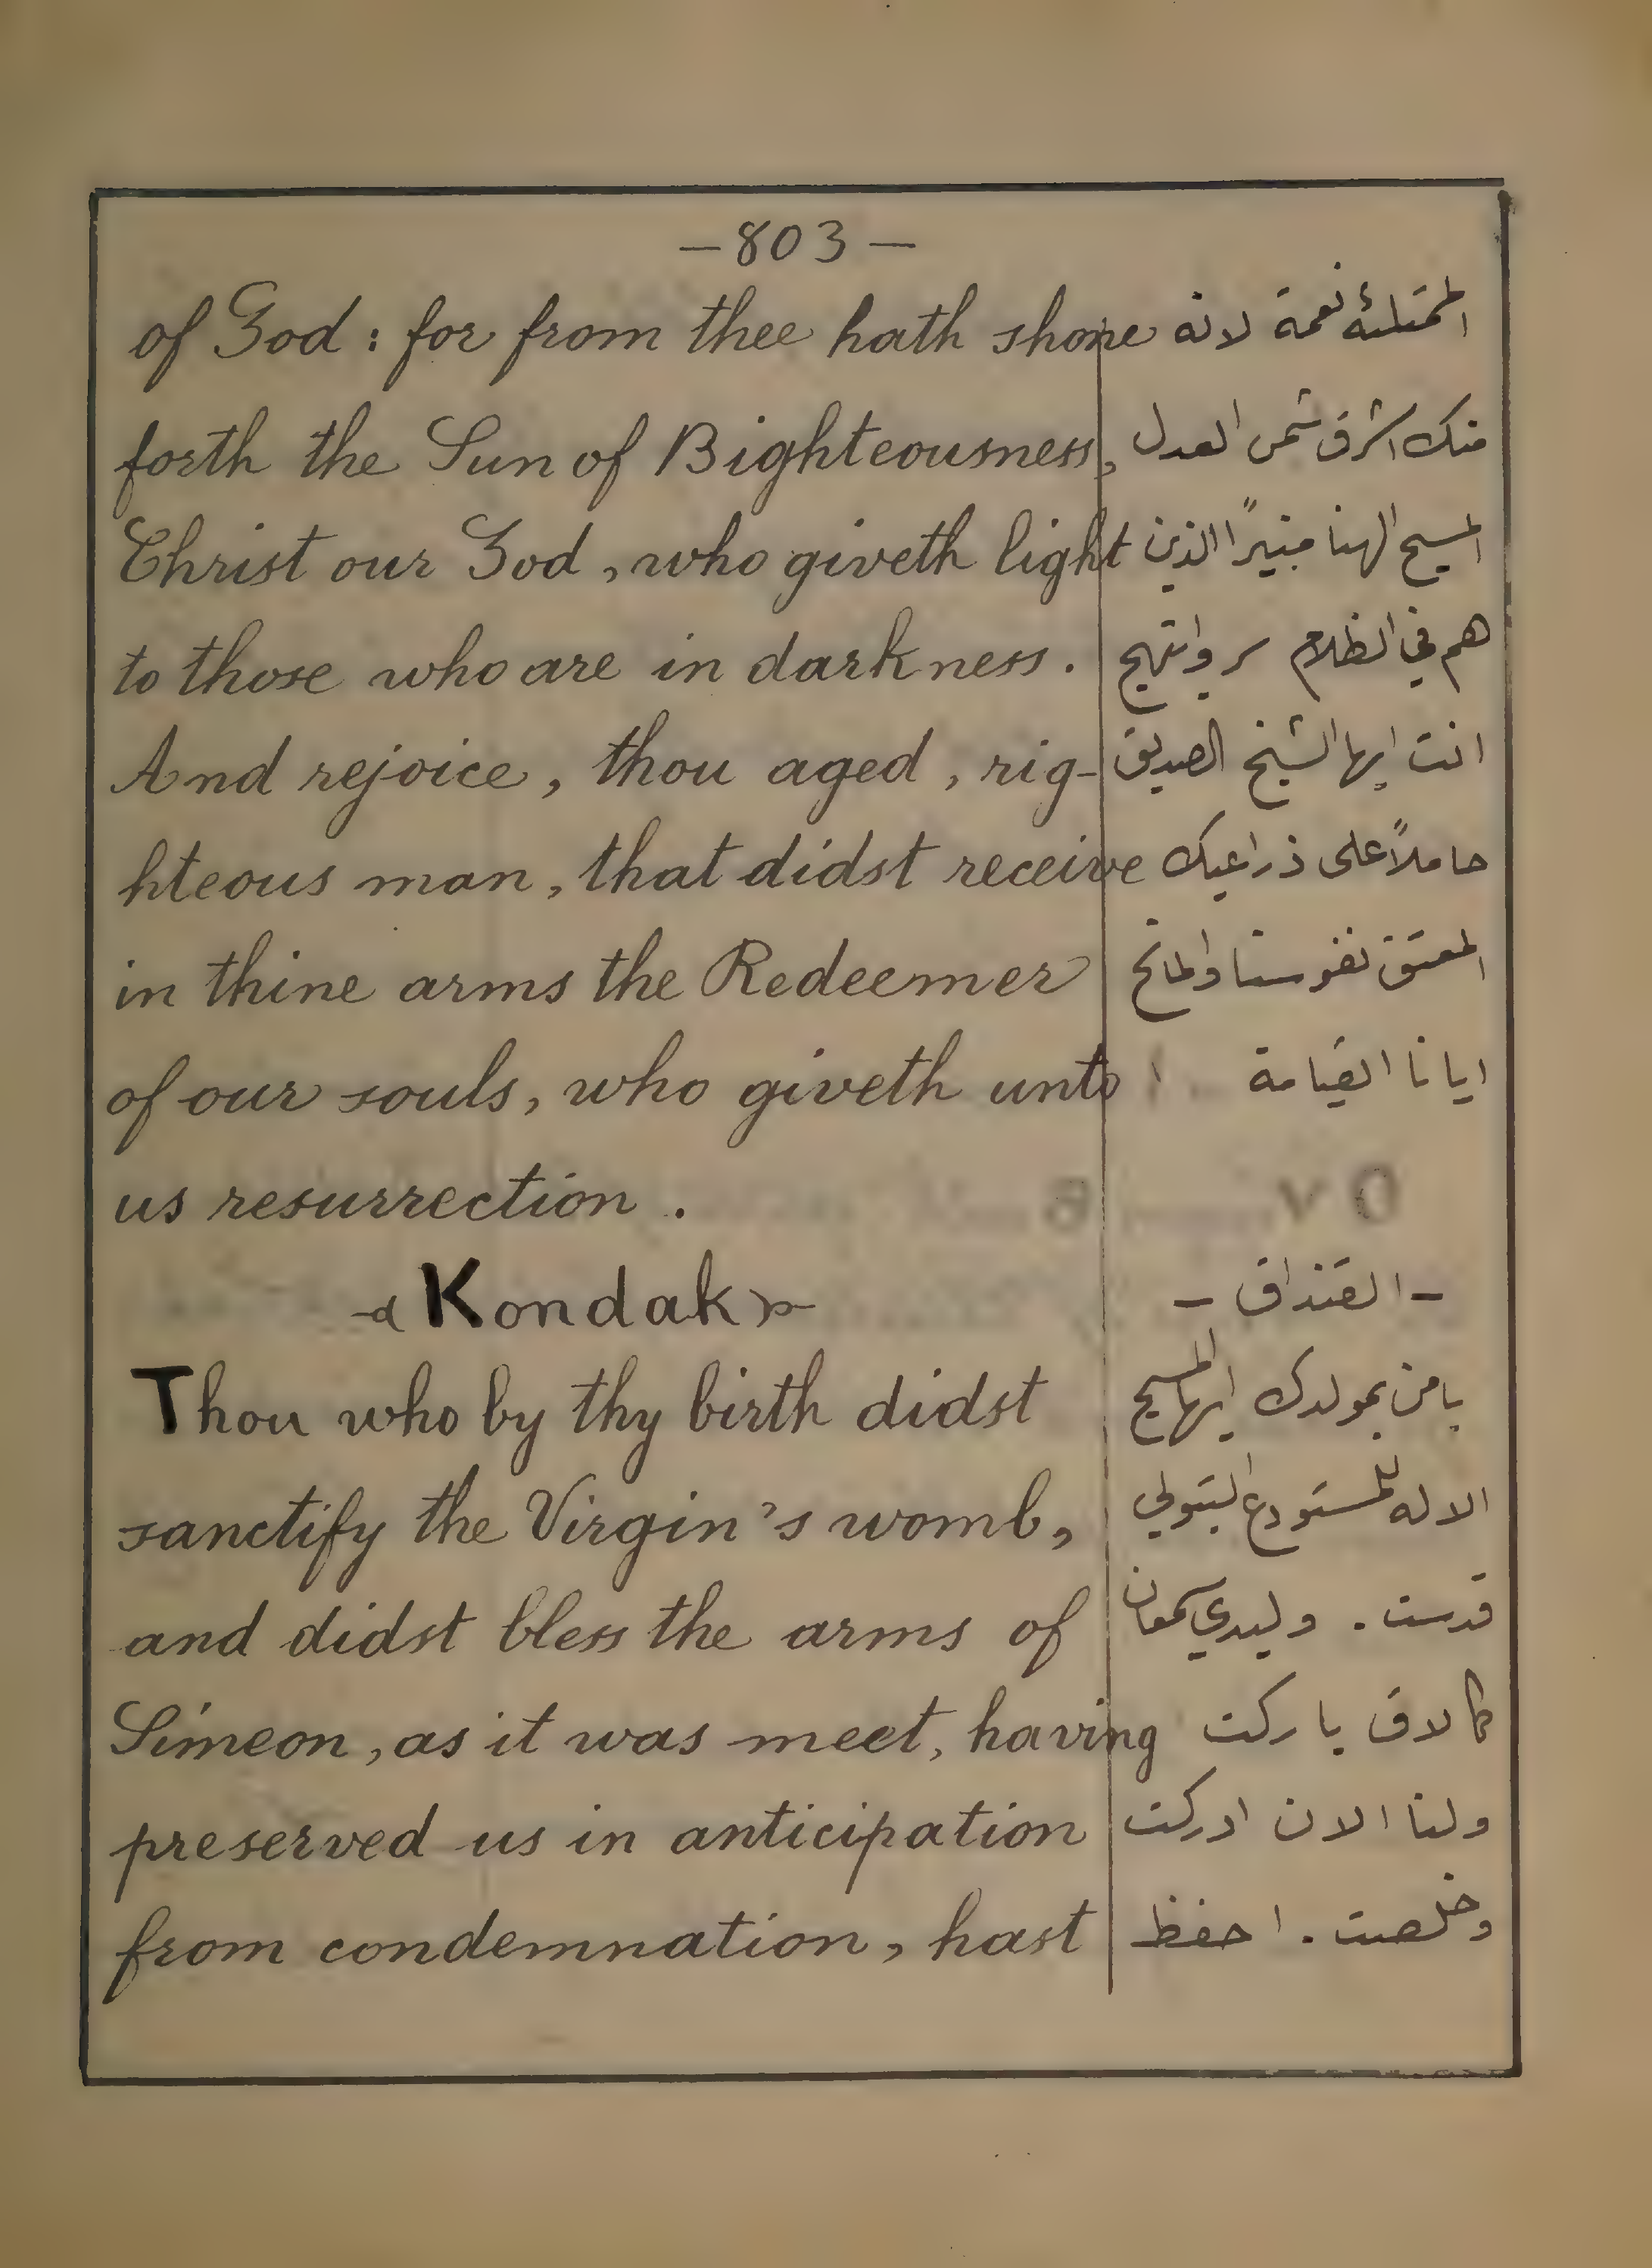 —803—
of God : for from thee hath shone
forth the Sun of Righteousness,
Christ our God, who giveth light
to those who are in darkness.
And rejoice, thou aged, rig-
hteous man, that didst receive
in thine arms the Redeemer
of our souls, who giveth unto
us resurrection.
Kondak
Thou who by thy birth didst
sanctify the Virgin's womb,
and didst bless the arms of
Simeon, as it was meet, having
preserved us in anticipation
from condemnation, hast
الممتلئة نعمة لانه
منك اشرق شمس العدل
المسيح الهنا منيرًا الذين
هم في الظلام سر وابتهج
انت ايها الشيخ الصديق
حاملاً على ذراعيك
المعتق نفوسنا والمانح
ايانا القيامة
- القنداق -
يا من بمولدك ايها المسيح
الاله للمستودع البتولي
قدست. وليدي سمعان
كما لاق باركت
ولنا الان ادركت
وخلصت. احفظ